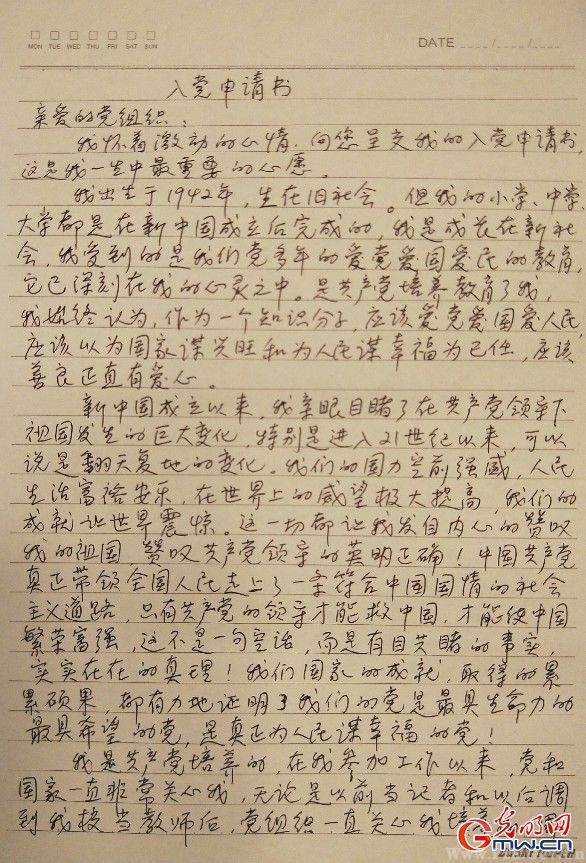 MON TUE WED THU FRI SAT SUN
DATE / /
入党申请书
亲爱的党组织：
我怀着激动的心情，向您呈交我的入党申请书，
这是我一生中最重要的心愿。
我出生于1942年，生在旧社会。但我的小学、中学、
大学都是在新中国成立后完成的，我是成长在新社
会，我受到的是我们党多年的爱党爱国爱民的教育，
它已深刻在我的心灵之中。是共产党培养教育了我，
我始终认为，作为一个知识分子，应该爱党爱国爱人民，
应该以为国家谋兴旺和为人民谋幸福为己任，应该
善良正直有爱心。
新中国成立以来，我亲眼目睹了在共产党领导下
祖国发生的巨大变化，特别是进入21世纪以来，可以
说是翻天复地的变化。我们的国力空前强盛，人民
生活富裕安乐，在世界上的威望极大提高，我们的
成就让世界震惊。这一切都让我发自内心的赞叹
我的祖国，赞叹共产党领导的英明正确！中国共产党
真正带领全国人民走上了一条符合中国国情的社会
主义道路，只有共产党的领导才能救中国，才能使中国
繁荣富强，这不是一句空话，而是有目共睹的事实，
实实在在的真理！我们国家的成就，取得的累
累硕果，都有力地证明了我们的党是最具生命力的
最具希望的党，是真正为人民谋幸福的党！
我是共产党培养的，在我参加工作以来，党和
国家一直非常关心我，无论是以前当记者和以后调
到我校当教师后，党组织一直关心我培养
光明网
GMW.cn